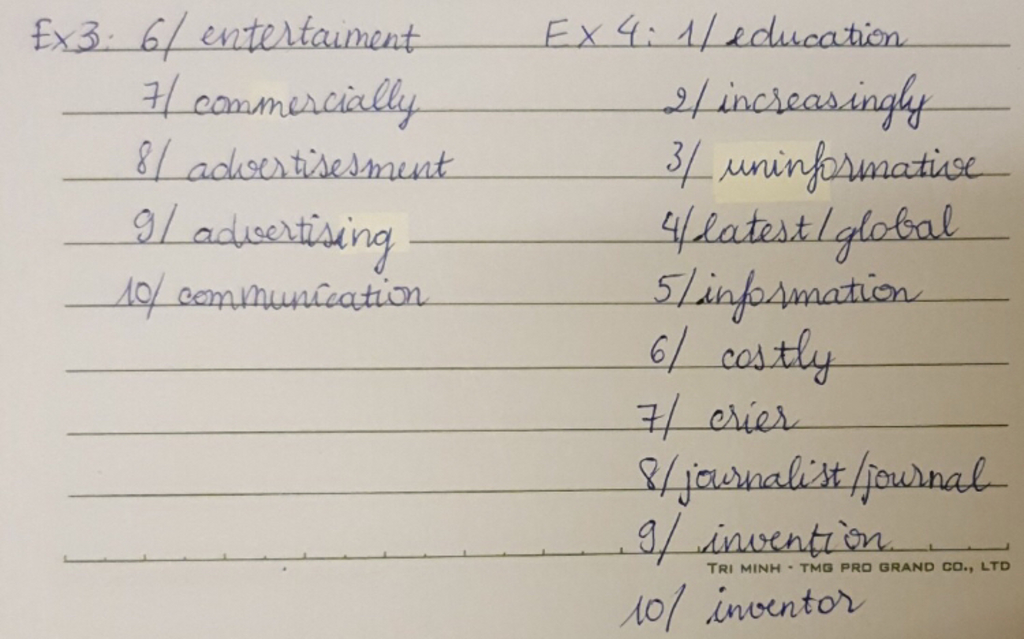 Ex3: 6/ entertaiment
7/ commercially
8/ advertisesment
9/ advertising
10/ communication
Ex 4: 1/ education
2/ increasingly
3/ uninformative
4/ latest / global
5/ information
6/ costly
7/ crier
8/ journalist / journal
9/ invention
TRI MINH - TMG PRO GRAND CO., LTD
10/ inventor